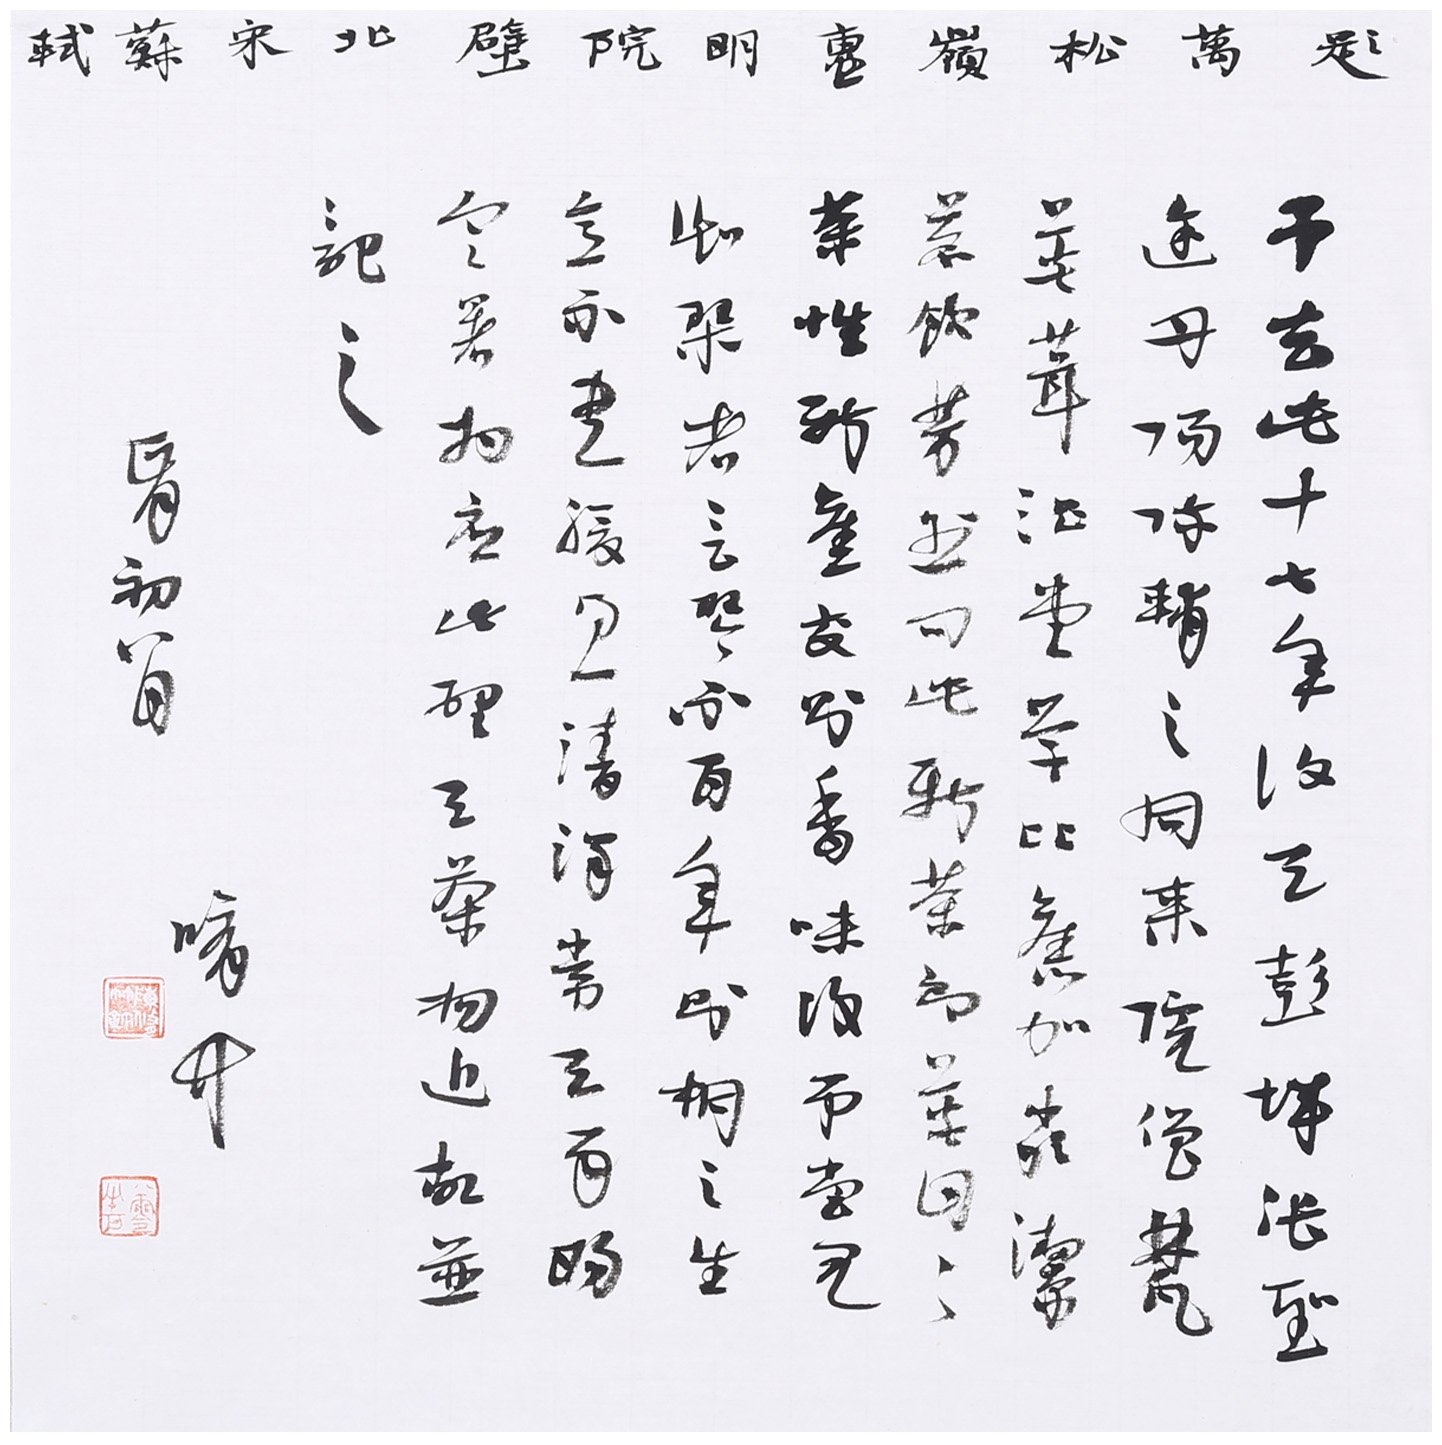 題萬松嶺惠明院壁北宋蘇軾
予去此十七年復与彭城張聖
途丹陽陳輔之同来院僧梵
英葺治堂宇比舊加嚴潔
茗飲芳烈問此新茶耶英曰
茶性新舊交則香味復予嘗見
知琴者言琴不百年則桐之生
意不盡緩急清濁常与雨暘
寒暑相應此理与茶相近故並
記之